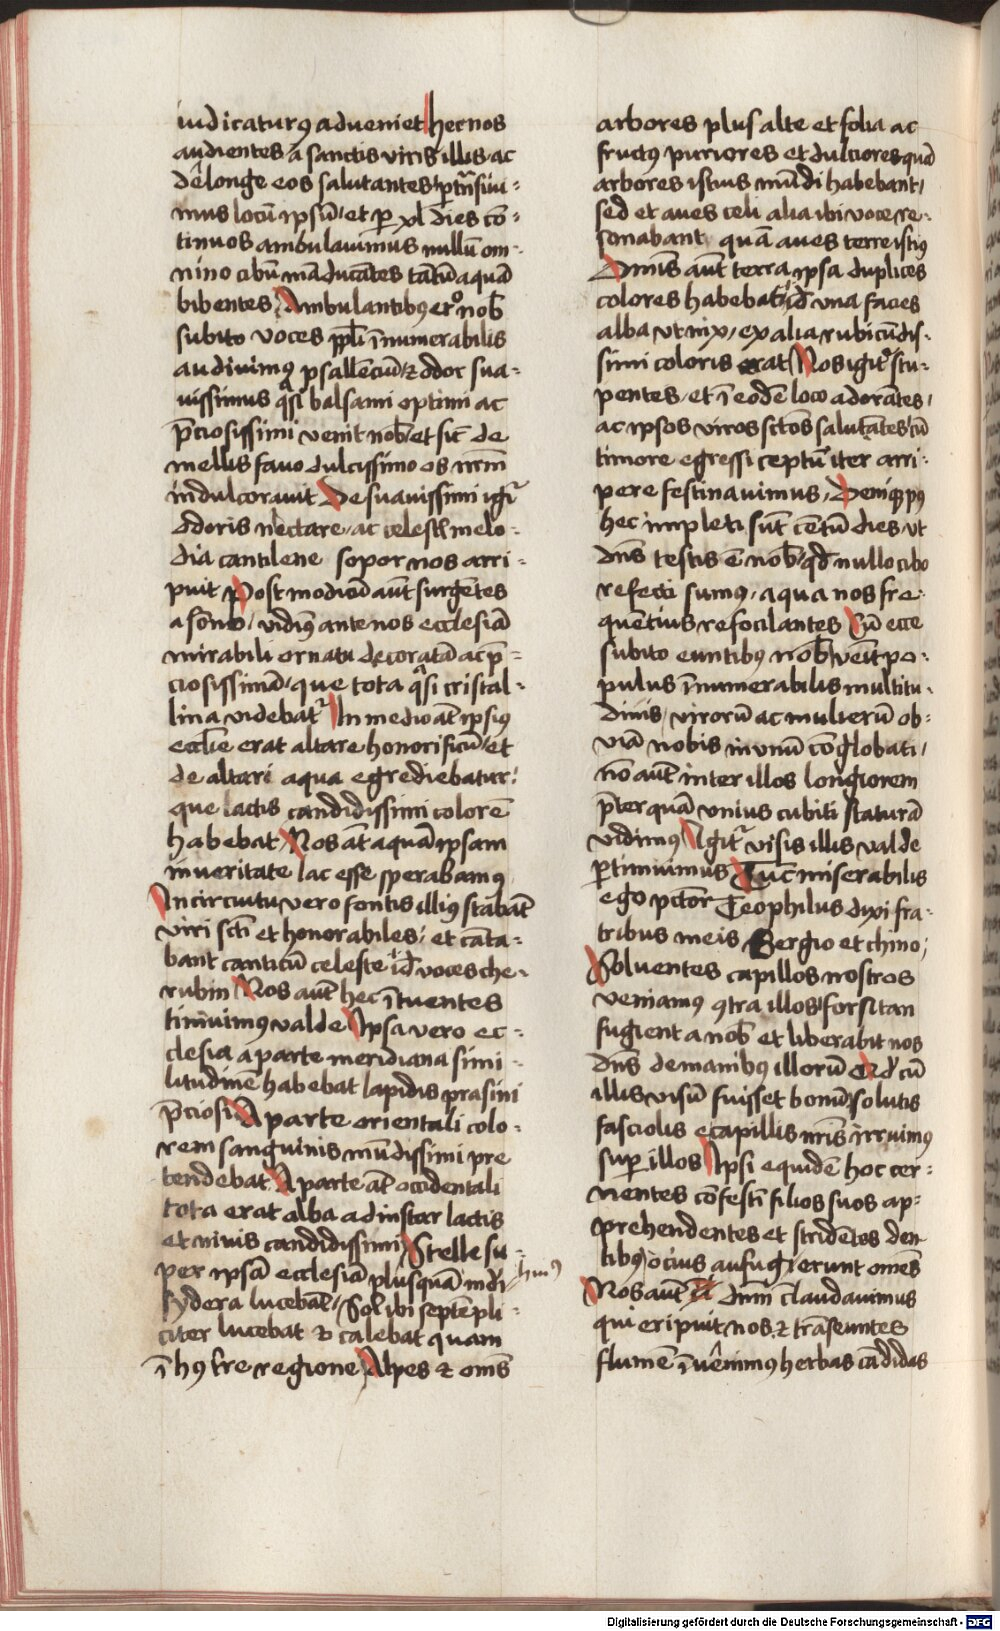 iudicaturꝯ adueniet hec nos
audientes a sanctis viris illis ac
de longe eos salutantes ptrāsiui-
mus locū ipsū et ꝑ xl dies cō-
tinuos ambulauimus nullū om-
nino cibū māducātes tātū aquā
bibentes Ambulantibꝯ ergo nob̄
subito voces ppl̄i īnumerabilis
audiuimꝯ psallēciū ⁊ odor sua-
uissimus qͣsi balsami optimi ac
p̄ciosissimi venit nob̄ et sic̄ de
mellis fauo dulcissimo os nr̄m
indulcorauit De suauissimi igit̄
odoris nectare ac celesti melo-
dia cantilene sopor nos arri-
puit Post modicū aut̄ surgētes
a sōno vidimꝯ ante nos ecclesiā
mirabili ornatu decoratā ac p̄-
ciosissimā que tota qͣsi cristal-
lina videbat̄ In medio at̄ ipsiꝯ
eccl̄ie erat altare honorificū et
de altari aqua egrediebatur
que lactis candidissimi colorē
habebat Nos at̄ aquā ipsam
in veritate lac esse sperabamꝯ
In circuitu vero fontis illiꝯ stabāt
viri sc̄ti et honorabiles et cāta-
bant canticū celeste id̄ voces che-
rubin Nos aut̄ hec ītuentes
timuimꝯ valde Ipsa vero ec-
clesia a parte meridiana simi-
litudinē habebat lapidis prasini
p̄ciosi A parte orientali colo-
rem sanguinis mūdissimi pre
tendebat A parte at̄ occidentali
tota erat alba ad instar lactis
et niuis candidissimi Stelle su-
per ipsā ecclesiā plusquā mūdi huiꝯ
sydera lucebāt Sol ibi septēpli-
citer lucebat ⁊ calebat quam
ī hꝯ t̄re regione Alpes ⁊ om̄s
arbores plus alte et folia ac
fructꝯ puriores et dulciores quā
arbores istius mūdi habebant
sed et aues celi alia ibi voce re-
sonabant quā aues terre istiꝯ
Om̄is aut̄ terra ipsa duplices
colores habebat id̄ vna facies
alba vt nix ex alia rubicūdis-
simi coloris erat Nos igit̄ stu-
pentes et ī eodē loco adorātes
ac ipsos viros sc̄tos salutātes cū
timore egressi ceptū iter arri-
pere festinauimus Deniqꝫ pꝯ
hec impleti sūt centū dies vt
dn̄s testis ē nob̄ qd̄ nullo cibo
refecti sumꝯ aqua nos fre-
quētius refocilantes Cū ecce
subito euntibꝯ nob̄ veīt po-
pulus īnumerabilis multitu-
dinis virorū ac mulierū ob-
viā nobis in vnū cōglobati
nō aut̄ inter illos longiorem
p̄terquā vnius cubiti staturā
vidimꝯ Igit̄ visis illis valde
ꝑtimuimus Tūc miserabilis
ego pc̄tor Teophilus dixi fra-
tribus meis Sergio et chino
Soluentes capillos nostros
veniamꝯ ꝯtra illos forsitan
fugient a nob̄ et liberabit nos
dn̄s de manibꝯ illorū Qd̄ cū
illis visū fuisset bonū solutis
fasciolis e capillis nr̄is irruimꝯ
suꝑ illos Ipsi equidē hoc cer-
nentes cōfestī filios suos ap-
prehendentes et stridētes den
tibꝯ ocius aufugierunt om̄es
Nos aut̄ dn̄m claudauimus
qui eripuit nos ⁊ trāseuntes
flumē īuēnimꝯ herbas cādidas
Digitalisierung gefördert durch die Deutsche Forschungsgemeinschaft - DFG